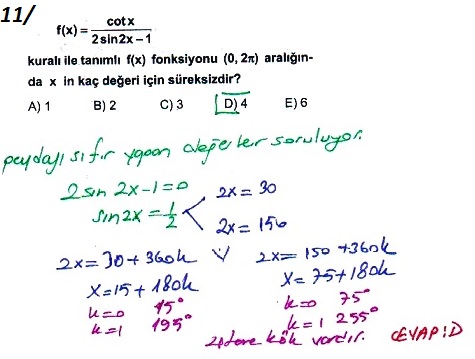 11/
f(x) = cotx / 2sin2x – 1
kuralı ile tanımlı f(x) fonksiyonu (0, 2π) aralığın-
da x in kaç değeri için süreksizdir?
A) 1 B) 2 C) 3 D) 4 E) 6
paydayı sıfır yapan değerler soruluyor.
2 sin 2x-1=0
sin2x = 1/2
2x = 30
2x = 150
2x = 30+360k V 2x = 150 +360k
x=15+180k x = 75+180k
k=0 15° k=0 75°
k=1 195° k=1 255°
4 tane kök vardır. CEVAP:D